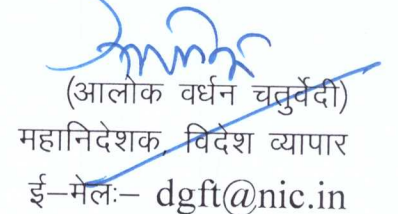 (आलोक वर्धन चतुर्वेदी)
महानिदेशक, विदेश व्यापार
ई–मेलः– dgft@nic.in